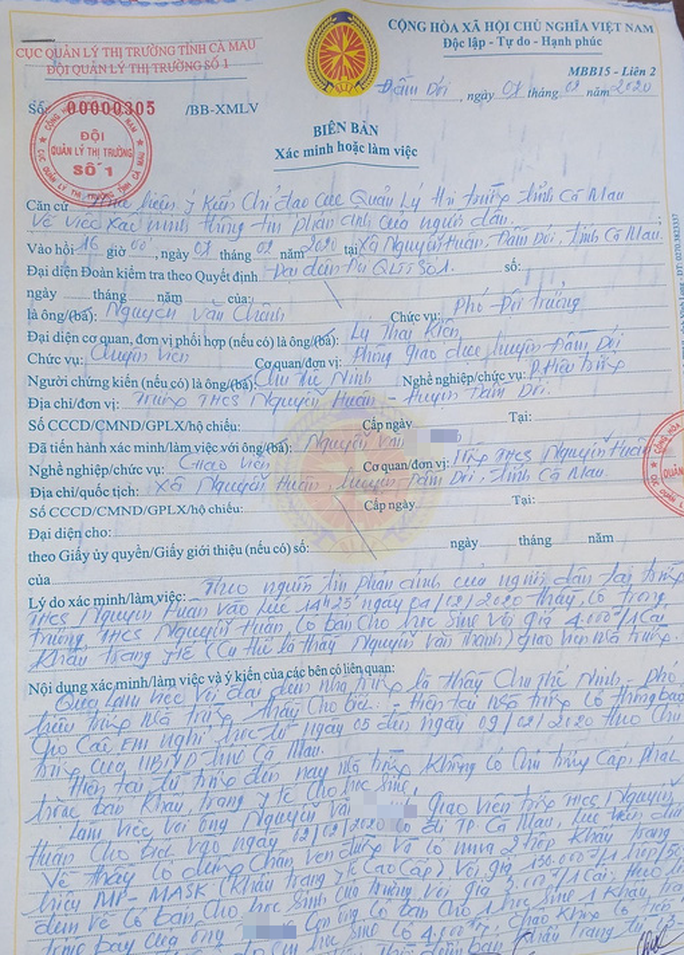 CỤC QUẢN LÝ THỊ TRƯỜNG TỈNH CÀ MAU
ĐỘI QUẢN LÝ THỊ TRƯỜNG SỐ 1
CỘNG HÒA XÃ HỘI CHỦ NGHĨA VIỆT NAM
Độc lập - Tự do - Hạnh phúc
MBB15 - Liên 2
Đầm Dơi, ngày 07 tháng 02 năm 2020
Số: 00000305 /BB-XMLV
ĐỘI
QUẢN LÝ THỊ TRƯỜNG
SỐ 1
BIÊN BẢN
Xác minh hoặc làm việc
Căn cứ Thực hiện ý kiến chỉ đạo cục Quản Lý thị trường tỉnh Cà Mau
Về việc xác minh thông tin phản ánh của người dân.
Vào hồi 16 giờ 00, ngày 07 tháng 02 năm 2020 tại xã Nguyễn Huân, Đầm Dơi, tỉnh Cà Mau.
Đại diện Đoàn kiểm tra theo Quyết định Đại diện Đội QLTT Số 1. số:
ngày tháng năm của:
là ông/(bà): Nguyễn Văn Chức vụ: Phó Đội trưởng
Đại diện cơ quan, đơn vị phối hợp (nếu có) là ông/(bà): Lý Thái Kiên
Chức vụ: Chuyên viên Cơ quan/đơn vị: Phòng giáo dục huyện Đầm Dơi
Người chứng kiến (nếu có) là ông/(bà): Chu Thế Ninh Nghề nghiệp/chức vụ: P. Hiệu trưởng
Địa chỉ/đơn vị: Trường THCS Nguyễn Huân - Huyện Đầm Dơi.
Số CCCD/CMND/GPLX/hộ chiếu: Cấp ngày Tại:
Đã tiến hành xác minh/làm việc với ông/(bà): Nguyễn Văn
Nghề nghiệp/chức vụ: Giáo viên Cơ quan/đơn vị: Trường THCS Nguyễn Huân
Địa chỉ/quốc tịch: Xã Nguyễn Huân, huyện Đầm Dơi, tỉnh Cà Mau.
Số CCCD/CMND/GPLX/hộ chiếu: Cấp ngày Tại:
Đại diện cho:
theo Giấy ủy quyền/Giấy giới thiệu (nếu có) số: ngày tháng năm
của
Lý do xác minh/làm việc: Theo nguồn tin phản ánh của người dân tại trường
THCS Nguyễn Huân vào lúc 14h25' ngày 04/02/2020 thấy, có trong
trường THCS Nguyễn Huân có bán cho học sinh với giá 4.000đ/1 cái
Khẩu trang y tế (Cụ thể là thầy Nguyễn Văn Thành) giáo viên nhà trường.
Nội dung xác minh/làm việc và ý kiến của các bên có liên quan:
Qua làm việc với đại diện nhà trường là thầy Chu Thế Ninh - phó
hiệu trưởng nhà trường thầy cho biết: - Hiện tại nhà trường có thông báo
cho các em nghỉ học từ ngày 05 đến ngày 09/02/2020 theo chủ
trương của UBND tỉnh Cà Mau.
Hiện tại từ trước đến nay nhà trường không có chủ trương cấp, phát
hoặc bán khẩu trang y tế cho học sinh.
Làm việc với ông Nguyễn Văn giáo viên trường THCS Nguyễn
Huân cho biết vào ngày 02/02/2020 có đi TP. Cà Mau, lúc trên đường
Về thầy có dừng chân ven đường và có mua 2 hộp khẩu trang
hiệu MP-MASK (khẩu trang y tế cao cấp) với giá 150.000đ/1 hộp/50
đem về có bán cho học sinh của trường với giá 3.000đ/1 cái,
trình bày của ông có bán cho 1 học sinh 1 khẩu trang